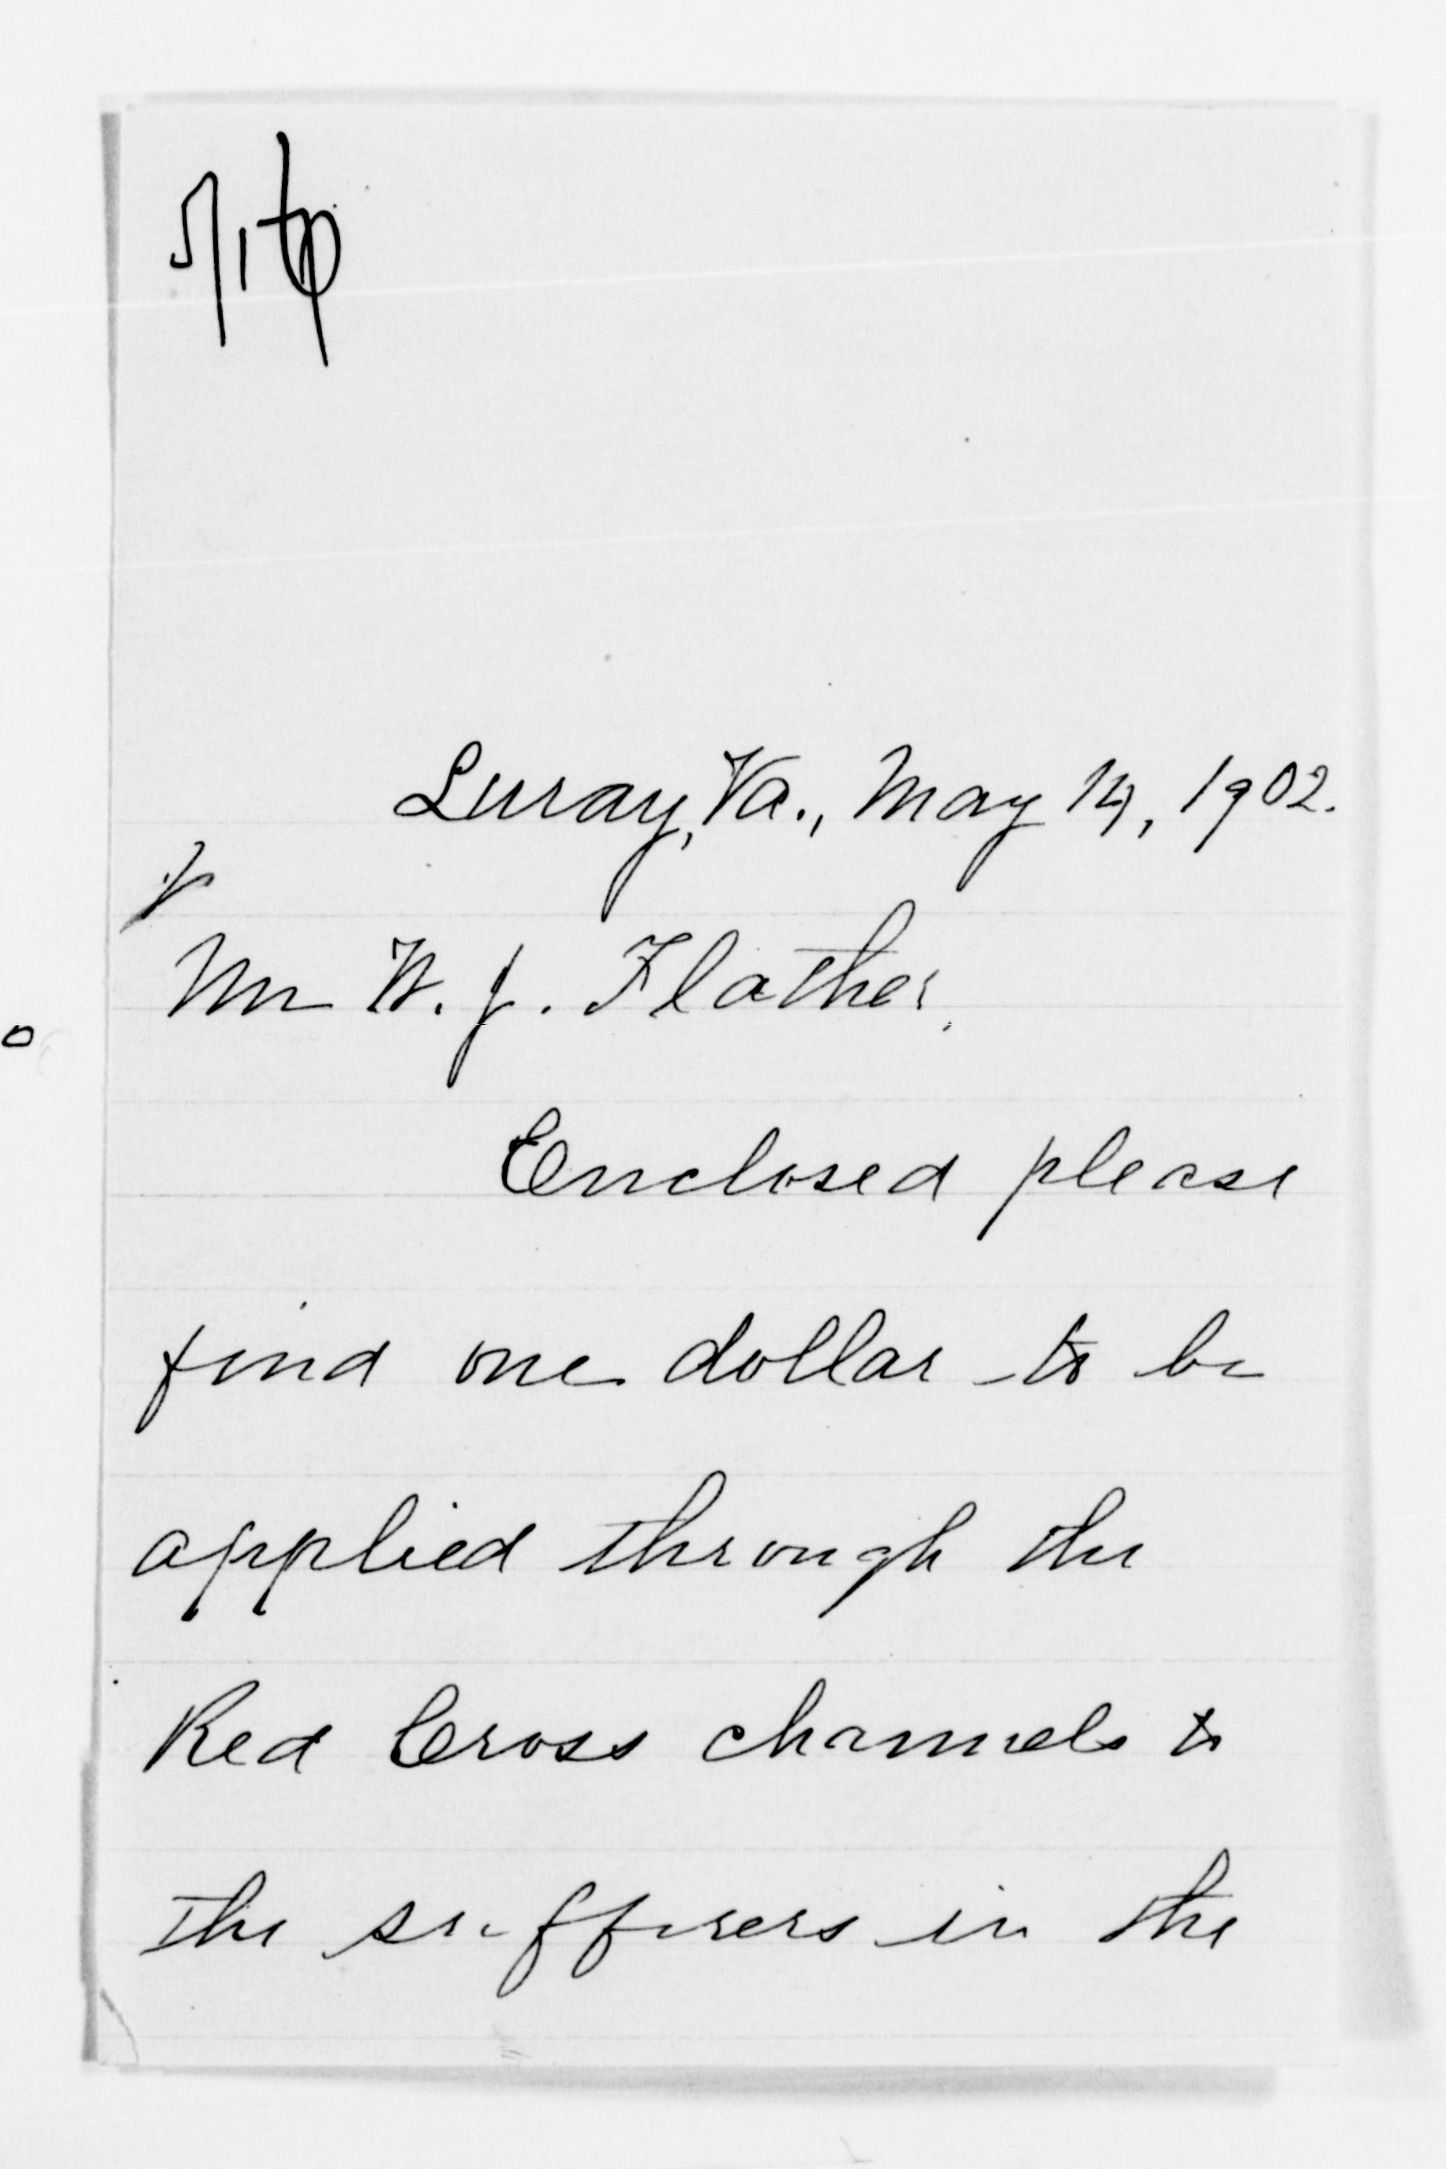 Luray, Va., May 14, 1902.
Mr W. J. Flather,
Enclosed please
find one dollar to be
applied through the
Red Cross channels to
the sufferers in the